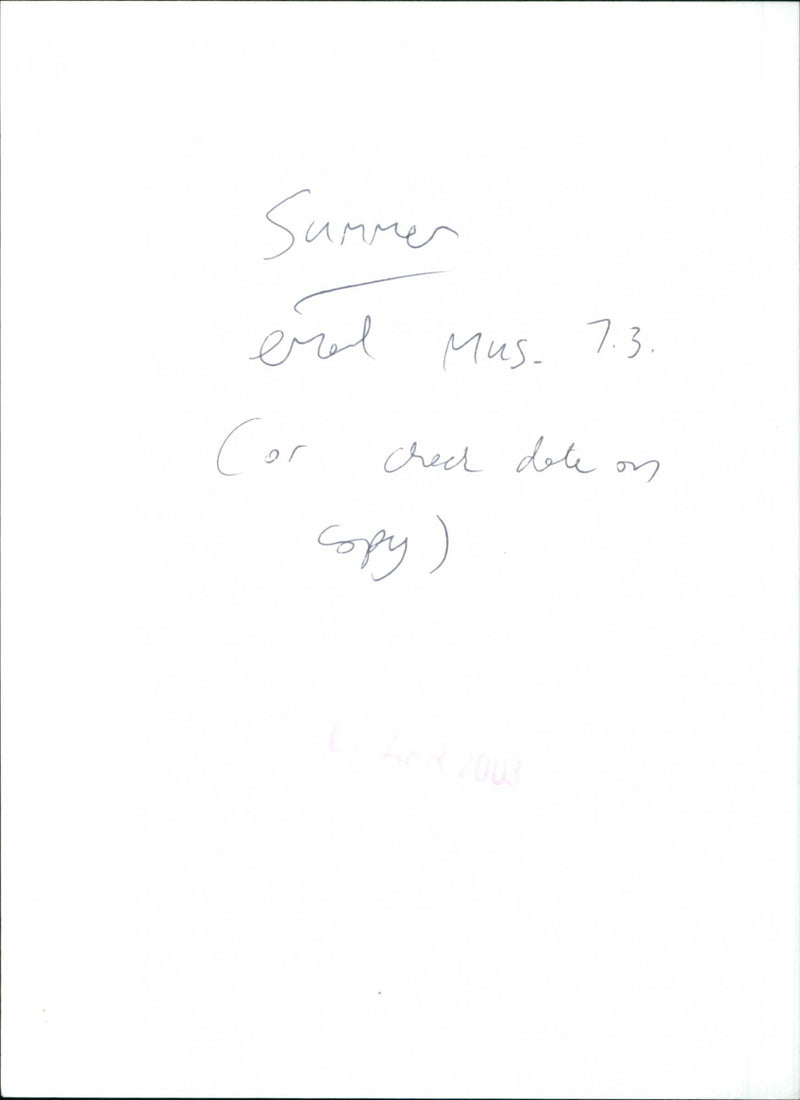 Summer
email Mus. 7.3.
(or check date on
copy)
APR 2003